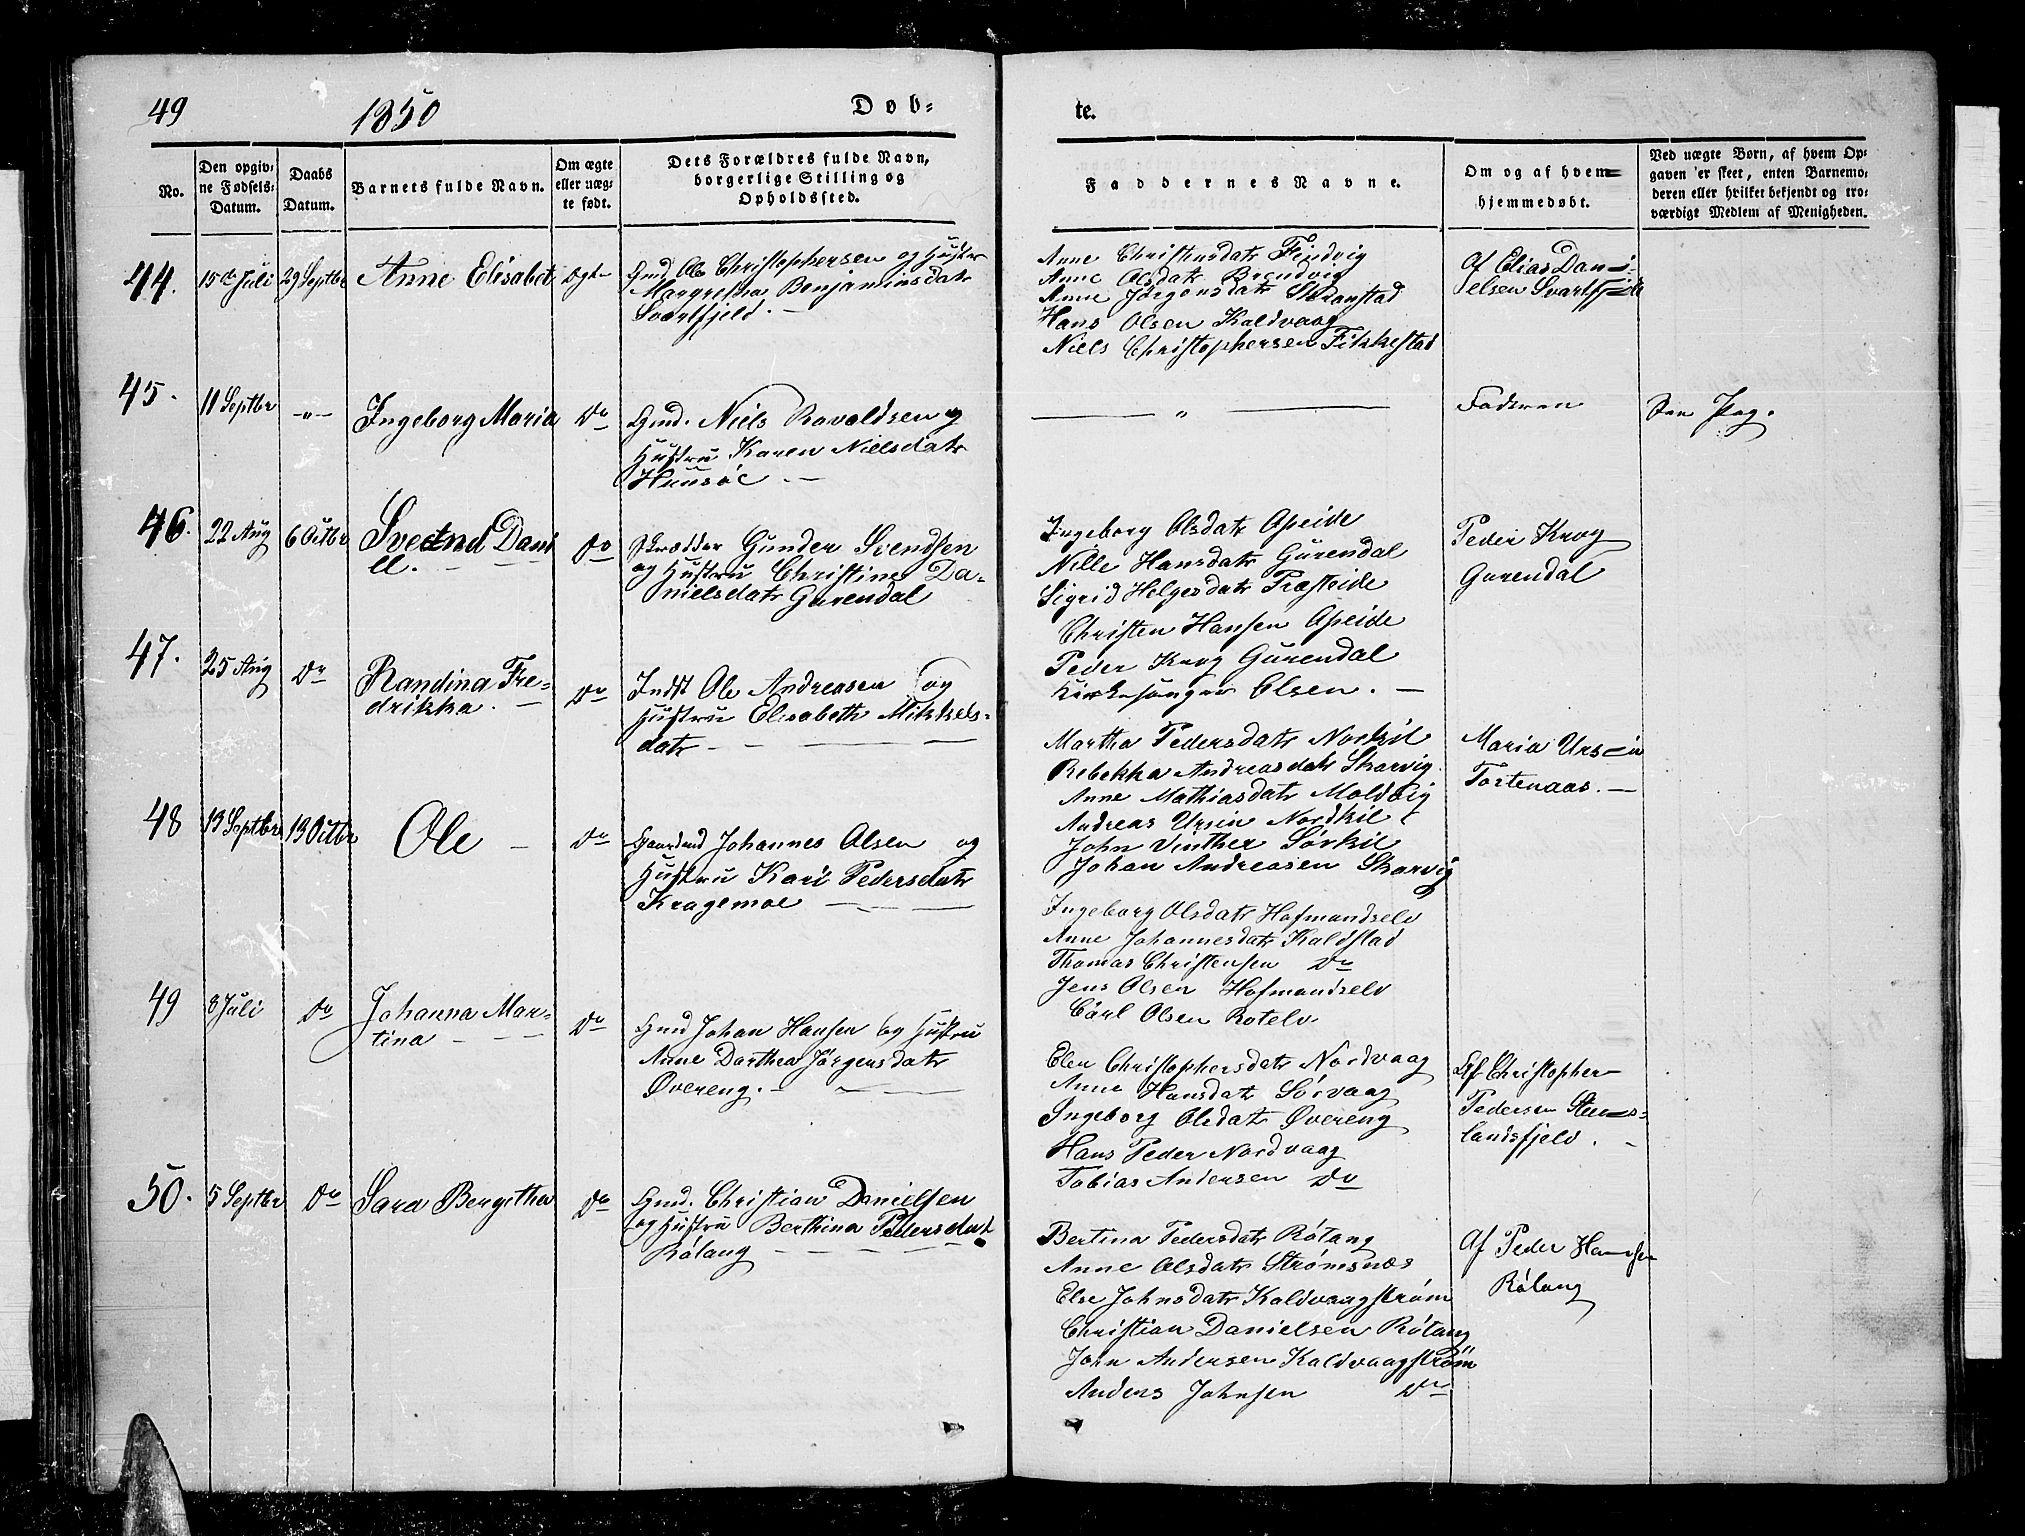 49
1850
Døb=
te.
No.
Den opgiv-
ne Fødsels-
Datum.
Daabs
Datum.
Barnets fulde Navn.
Om ægte
eller uæg-
te født.
Dets Forældres fulde Navn,
borgerlige Stilling og
Opholdssted.
Faddernes Navne.
Om og af hvem
hjemmedøbt.
Ved uægte Børn, af hvem Op-
gaven er skeet, enten Barnemo-
deren eller hvilket bekjendt og tro-
værdigt Medlem af Menigheden.
44.
15de Juli
29 Septbr
Anne Elisabet
Ægte
Gmd Ole Christophersen og Hustru
Margretha Benjaminsdatr
Svartfjeld. —
Anne Christensdatr Findvig
Anne Olsdatr Brendvig
Anne Jørgensdatr Skranstad
Hans Olsen Kaldvaag
Niels Christophersen Fikkestad
Af Elias Dani-
elsen Svartfjeld
45.
11 Septbr
-"-
Ingeborg Maria
Do
Gmd. Niels Ravaldsen og
Hustru Karen Nielsdatr
Huusøe. —
"
Faderen
46.
22 Aug
6 Octbr
Svend Dani
el.
Do
Skrædder Gunder Svendsen
og Hustru Christine Da-
nielsdatr Gurendal
Ingeborg Olsdatr Apeide
Nille Hansdatr Gurendal
Sigrid Helgesdatr Præsteide
Christen Hansen Apeide
Peder Krog Gurendal
Kirkesanger Olsen. —
Peder Krog
Gurendal
47.
25 Aug
Do
Randina Fre-
drikka. —
Do
Indst Ole Andreasen og
Hustru Elisabeth Mikkels-
datr — —
Martha Pedersdatr Norkil
Rebekka Andreasdatr Skarvig
Anne Mathiasdatr Moldvig
Andreas Ursin Nordkil
John Vinther Sørkil
Johan Andreasen Skarvig
Maria Ursin
Tortenaas. —
48
13 Septbr
13 Octbr
Ole —
Do
Gaardmd Johannes Olsen og
Hustru Kari Pedersdatr
Kragemoe —
Ingeborg Olsdatr Hofmandselv
Anne Johannesdatr Kaldstad
Thomas Christensen Do
Jens Olsen Hofmandselv
Carl Olsen Botelv.
49
8 Juli
Do
Johanna Mar-
tina —
Do
Gmd Johan Hansen og Hustru
Anne Dorthea Jørgensdatr
Øvereng. —
Elen Christophersdatr Nordvaag
Anne Hansdatr Sørvaag
Ingeborg Olsdatr Øvereng
Hans Peder Nordvaag
Tobias Andersen Do
Af Christopher
Pedersen Steens-
landsfjeld. —
50.
5 Septbr
Do
Sara Bergitha
Do
Gmd. Christian Danielsen
og Hustru Berthina Pedersdat
Røtang —
Bertina Pedersdatr Røtang
Anne Olsdatr Strømsnæs
Else Johnsdatr Kaldvaagstrøm
Christian Danielsen Røtang
John Andersen Kaldvaagstrøm
Anders Johnsen Do
Af Peder Hansen
Røtang